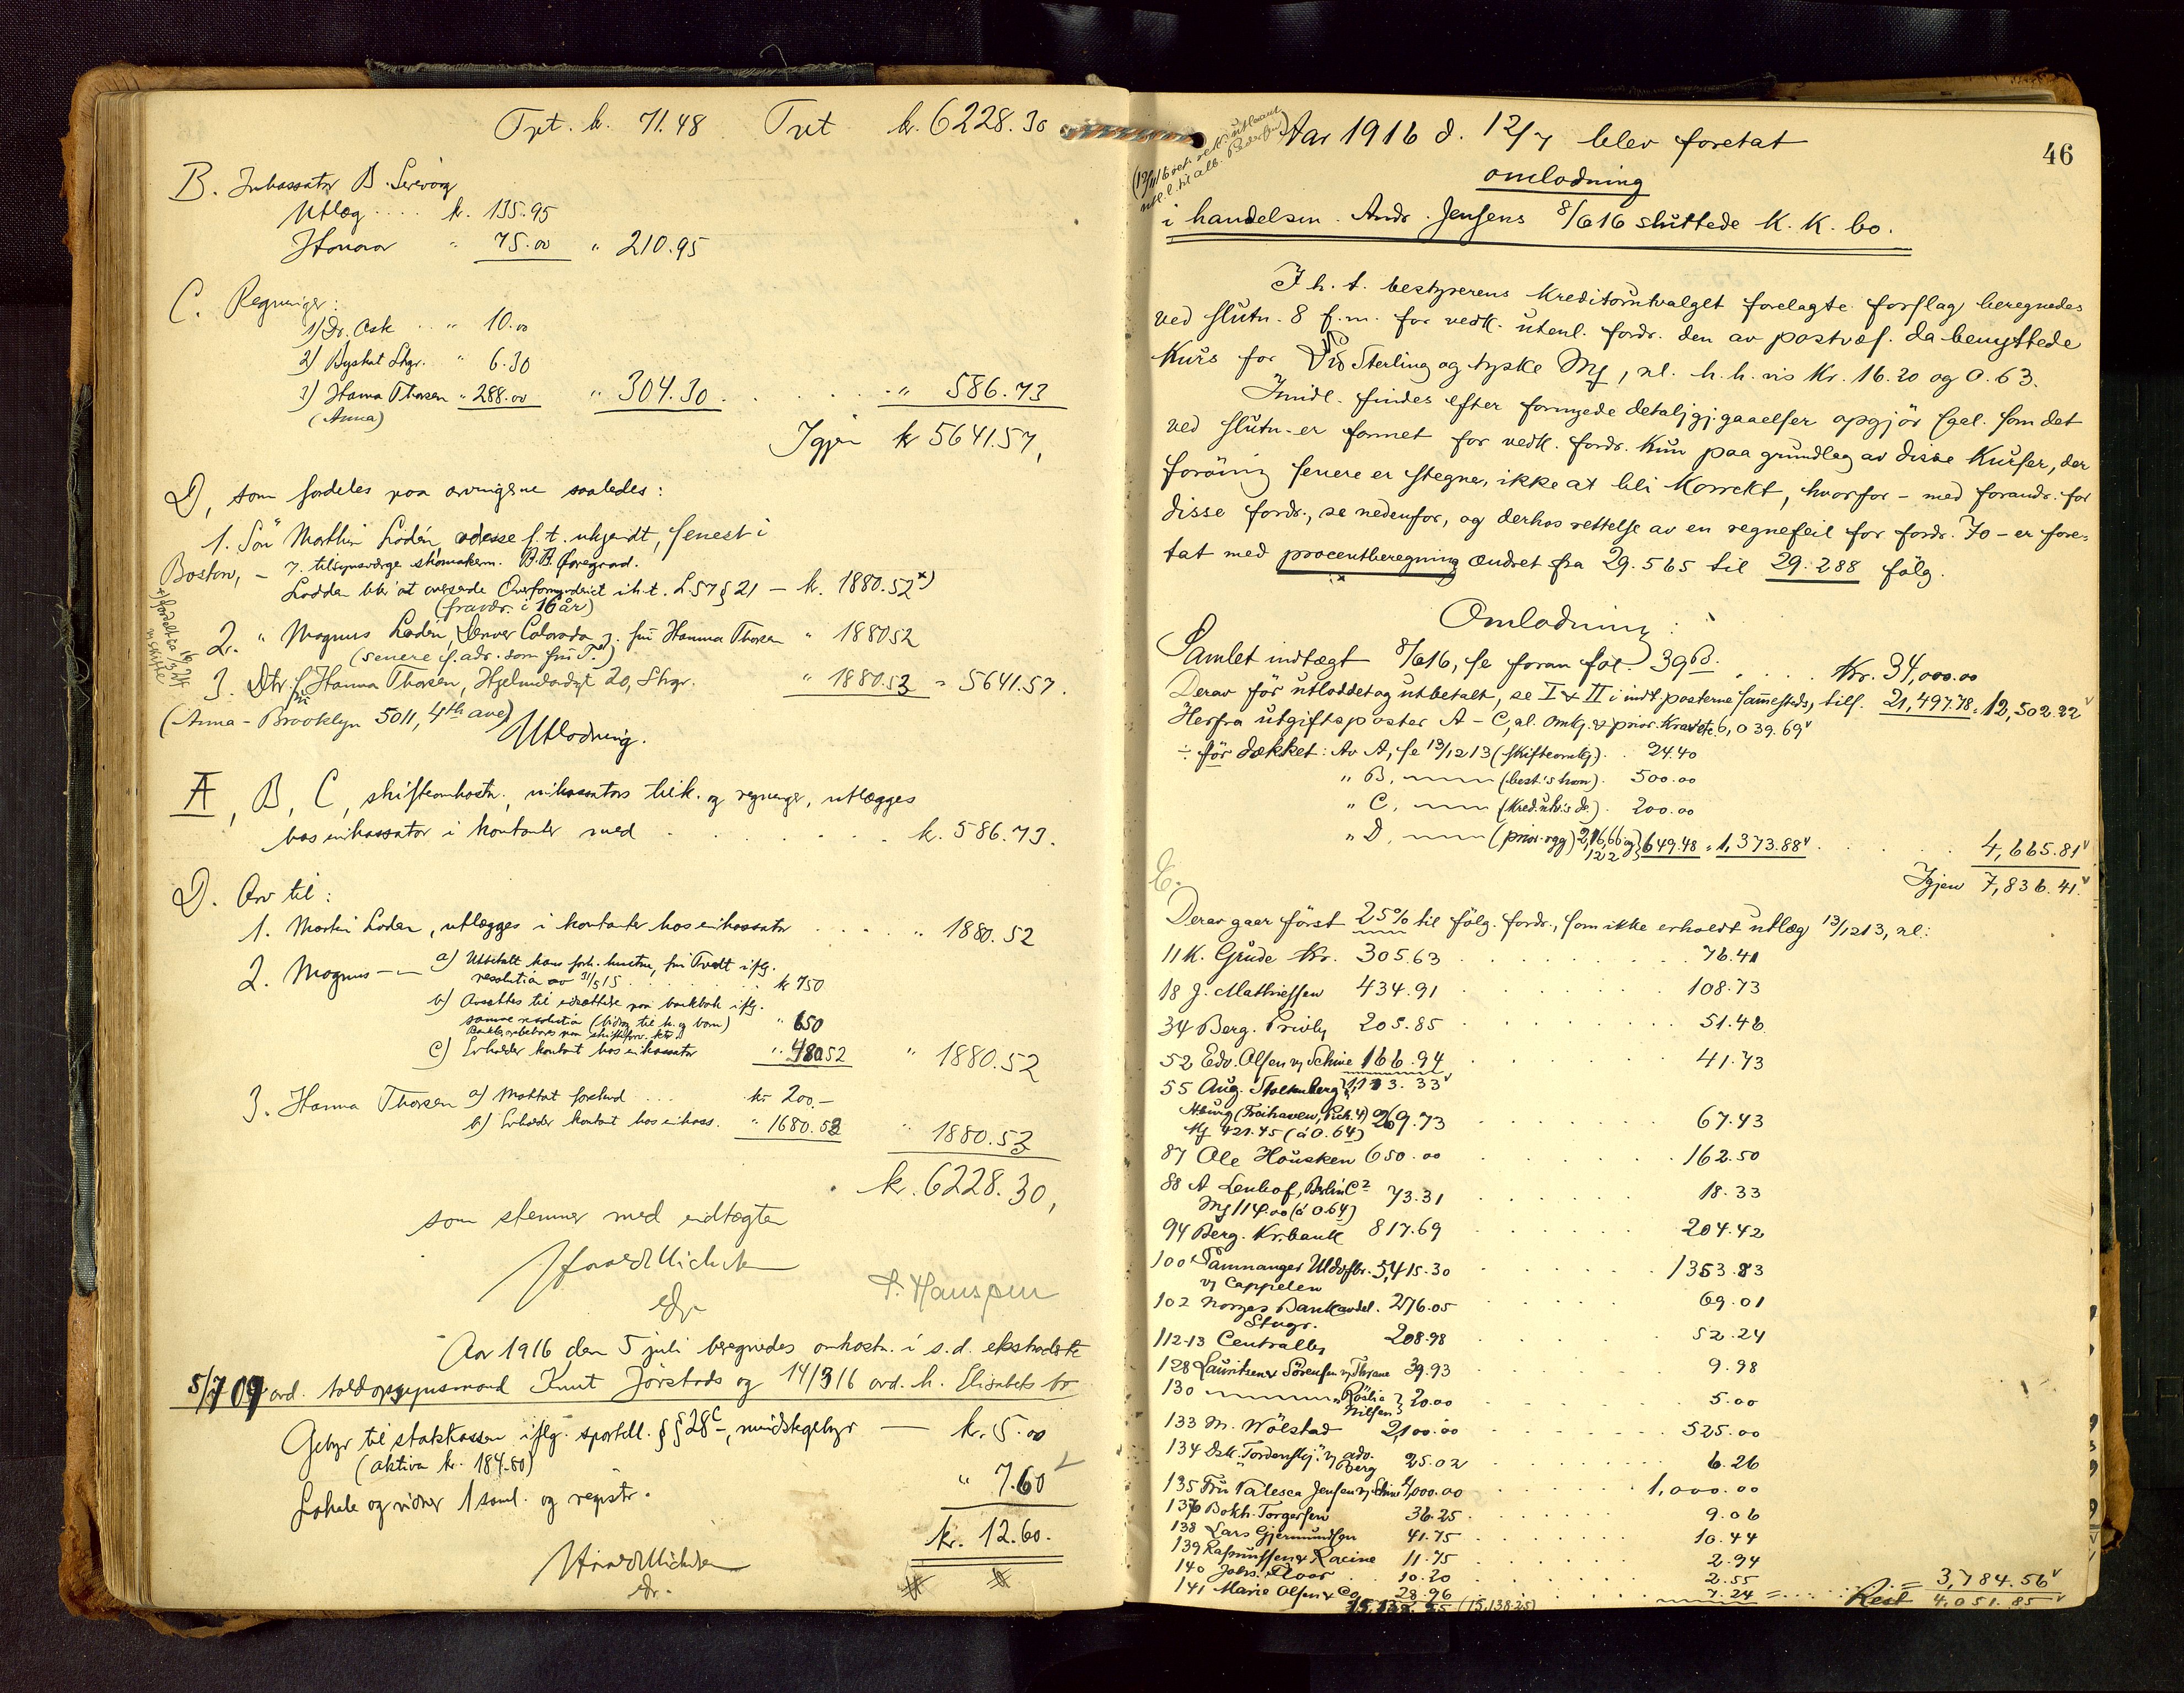 Trpt. kr. 71.48 Trpt kr. 6228.30
B. Inkassator B. Sirevaag
Utlæg .... kr. 135.95
Honorar " 75.00 " 210.95
C. Regninger:
1) Dr. Ask .. " 10.00
2) Byskat Stgr. " 6.30
3) Hanna Thorsen " 288.00 " 304.30 . . . . . " 586.73
(Anna)
Igjen kr 5641.57,
D, som fordeles paa arvingerne saaledes:
1. Sön Marthin Lodén, adresse f.t. ukjendt, senest i
Boston, – 7. tilsynsværge skomakerm. B.B.
Lodden blir at oversende Overformynderiet i h.t. L. 57 § 21 — kr. 1880.52 x)
(fravær. i 16 år)
2. " Magnus Lodén, Denver Colorado z. frü Hanna Thorsen " 1880 52
(senere f. adr. som frü T.)
3. Dtr. frü Hanna Thorsen, Hjelmelandsgt 20, Stvgr. " 1880.53 = 5641.57.
(Anna – Brooklyn 5011, 4th ave)
Utlodning.
A, B, C, skifteomkostn., inkassators tilk. og regninger, utlægges
hos inkassator i kontanter med . . . . . kr. 586.73.
D. Arv til:
1. Martin Loden, utlægges i kontanter hos inkassator . . . . . " 1880.52
2. Magnus –"– a) Utbetalt hans forh. hustru, frü Tvedt iflg.
resolution av 31/5 15 . . . . . kr 750
b) Avsættes til indsættelse paa bankbok iflg.
samme resolution (bidrag til h. og barn) " 650
c) Erholder kontant hos inkassator " 480 52 " 1880.52
3. Hanna Thorsen a) Mottat forskud ... kr 200.–
b) Erholder kontant hos inkass. " 1680.53 " 1880.53
kr. 6228.30,
som stemmer med indtægten
edr
P. Hanssen
Aar 1916 den 5 juli beregnedes omkostn. i s. d. ekstraderte
5/7 09 avd. toldopsynsmand Knut Jörstads og 14/3 16 avd. h. Elisabets bo
Gebyr til statskassen iflg. sportell. § § 28 c –, mindstegebyr — kr. 5.00
(aktiva kr. 184.80)
Lokale og vidner 1 saml. og registr. " 7.60
kr. 12.60.
edr.
46
Aar 1916 d. 12/7 blev foretat
omlodning
i handelsm. Andr. Jensens 8/6 16 sluttede K. K. bo.
I h. t. bestyrerens Kreditorutvalget forelagte forslag beregnedes
ved slutn. 8 f. m. for vedk. utenl. fordr. den av postvæs. da benyttede
Kurs for Pd Sterling og tyske Mk, nl. h. h. vis Kr. 16.20 og 0.63.
Imidl. findes efter fornyede detaljgjgaaelser opgjör sael. som det
ved slutn. er formet for vedk. fordr. Kun paa grundlag av disse Kurser, der
foröunig senere er stegne, ikke at bli Korrekt, hvorfor – med forandr. for
disse fordr., se nedenfor, og derhos rettelse av en regnefeil for fordr. 70 – er fore-
tat med procentberegning ændret fra 29.565 til 29.288 fölg.
Omlodning:
Samlet indtægt 8/6 16, se foran fol. 39 b. . . . . Kr. 34,000.00
Derav för utloddet og utbetalt, se I & II i indt. posterne sammesteds, tils. 21,497.78 = 12,502.22
Herfra utgiftsposter A – C, al. omk. & prior. Krav etc. 6,039.69
÷ för dækket: Av A, se 13/12 13 (skifteomk). . 24.40
" B, —"— (best.'s hon). 500.00
" C, —"— (Kred.utv.'s do). 200.00
" D, —"— (prior. ogg) 2,16,66 og 122 } 649.48 = 1,373.88 . . . . 4,665.81
Igjen 7,836.41
Derav gaar först 25% til fölg. fordr., som ikke erholdt utlæg 13/12 13, nl:
11 K. Grüde Kr. 305.63 . . . . . 76.41
18 J. Mathiessen 434.91 . . . . . 108.73
34 Berg. Privbk 205.85 . . . . . 51.46
52 Edv. Olsen v/ Schive 166.94 . . . . . 41.73
55 Aug. Stoltenberg 1,113.33
Hburg (Freihaven, Pick. 4) 269.73 . . . . . 67.43
Mk 421.45 (à 0.64)
87 Ole Housken 650.00 . . . . . 162.50
88 A Lenhof, Berlin C 2 73.31 . . . . . 18.33
Mk 114.00 (à 0.64)
94 Berg. Kr.bank 817.69 . . . . . 204.42
100 Samnanger Uldvfbr. 5,415.30 . . . . . 1353.83
v/ Cappelen
102 Norges Bank avdel. 276.05 . . . . . 69.01
Stvgr.
112-13 Centralbk 208.98 . . . . . 52.24
128 Lauritzen & Sörensen v/ Thrane 39.93 . . . . . 9.98
130 —"— Röslie Nilsen } 20.00 . . . . . 5.00
133 M. Wölstad 2,100.00 . . . . . 525.00
134 Dsk. "Tordenskj." v/ adv. Berg 25.02 . . . . . 6.26
135 Frü Valesca Jensen v/ Schive 4,000.00 . . . . . 1,000.00
136 Bokh. Torgersen 36.25 . . . . . 9.06
138 Lars Gjermundsen 41.75 . . . . . 10.44
139 Rasmussen & Racine 11.75 . . . . . 2.94
140 Johs. Floor 10.20 . . . . . 2.55
141 Marie Olsen & Co 28.96 . . . . . 7.24 = . . . . = 3,784.56
(15,138.25) Rest 4,051.85